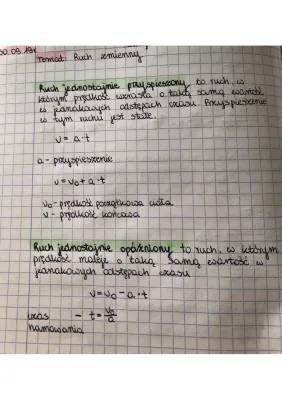 30.09.19r
Temat: Ruch zmienny
Ruch jednostajnie przyspieszony to ruch, w
którym prędkość wzrasta o taką samą wartość
w jednakowych odstępach czasu. Przyspieszenie
w tym ruchu jest stałe.
v = a·t
a - przyspieszenie
v = v₀ + a·t
v₀ - prędkość początkowa ciała
v - prędkość końcowa
Ruch jednostajnie opóźniony to ruch, w którym
prędkość maleje o taką samą wartość w
jednakowych odstępach czasu
v = v₀ - a·t
czas - t = v₀/a
hamowania